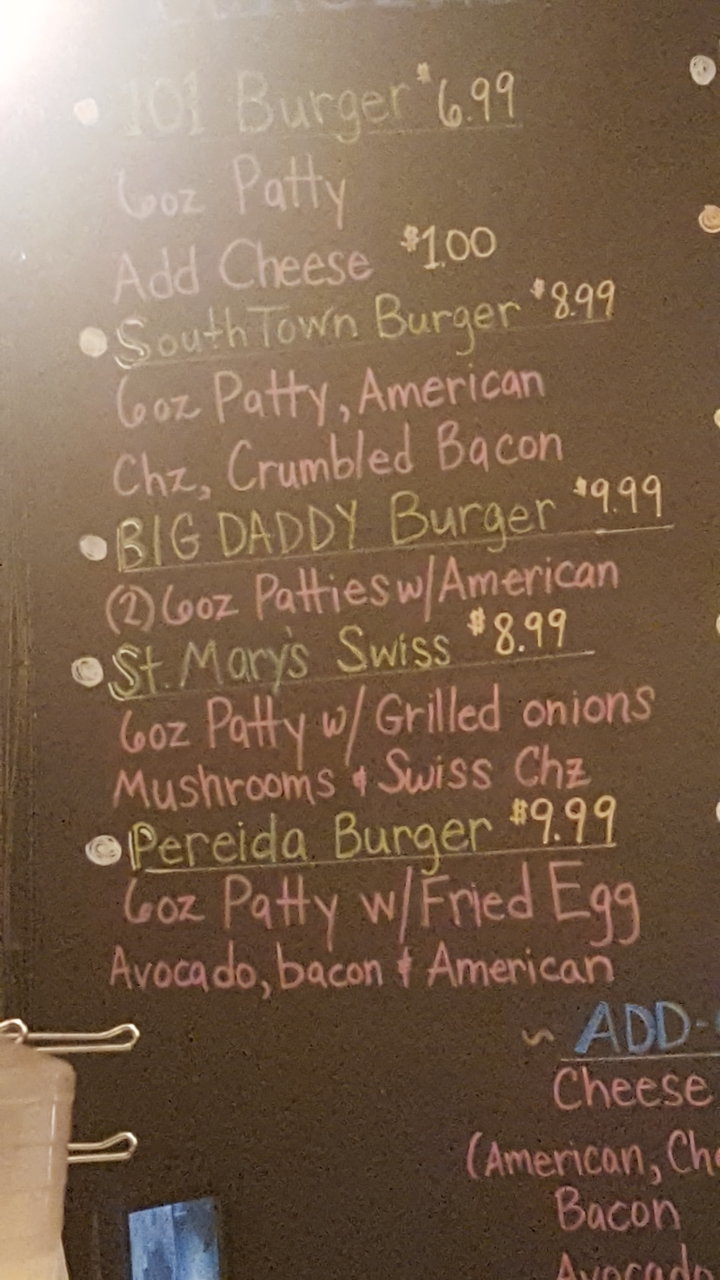 101 Burger $6.99
6oz Patty
Add Cheese $1.00
SouthTown Burger $8.99
6oz Patty, American
Chz, Crumbled Bacon
BIG DADDY Burger $9.99
(2) 6oz Patties w/American
St. Mary's Swiss $8.99
6oz Patty w/ Grilled onions
Mushrooms & Swiss Chz
Pereida Burger $9.99
6oz Patty w/Fried Egg
Avocado, bacon & American
~ ADD-
Cheese
(American, Che
Bacon
Avocado